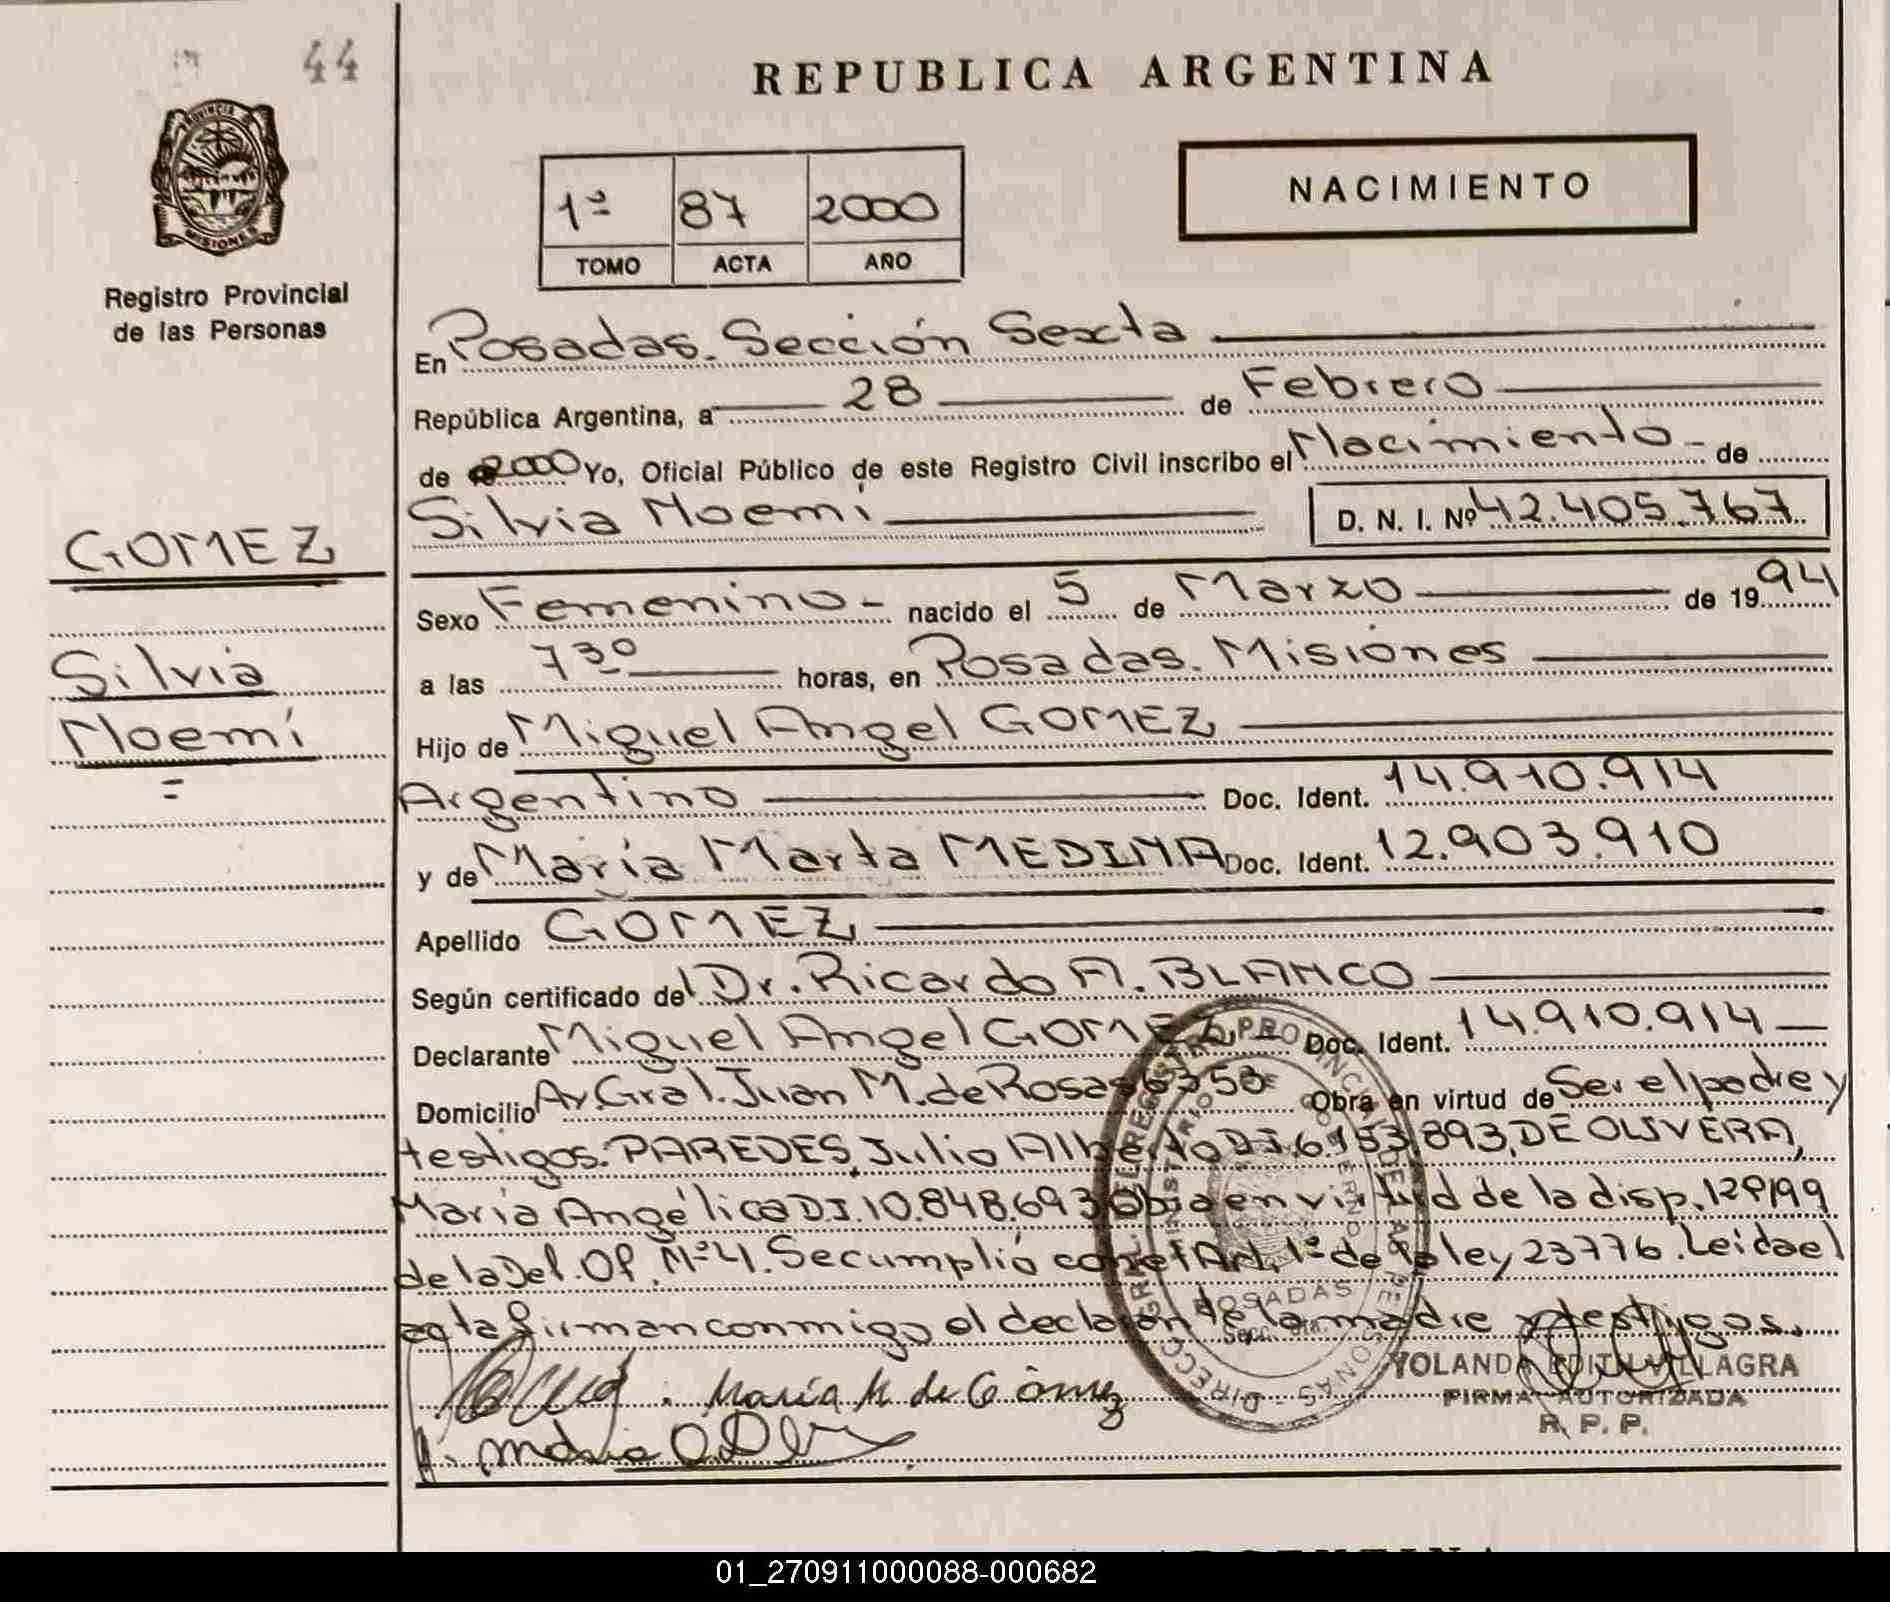 44
REPUBLICA ARGENTINA
NACIMIENTO
1º 87 2000
TOMO ACTA AÑO
PROVINCIA DE
MISIONES
Registro Provincial
de las Personas
En Posadas. Sección Sexta
República Argentina, a 28 de Febrero
de 2000 Yo, Oficial Público de este Registro Civil inscribo el Nacimiento de
Silvia Noemí D. N. I. Nº 42.405.767
GOMEZ
Silvia
Noemí
Sexo Femenino nacido el 5 de Marzo de 1994
a las 7 30 horas, en Posadas. Misiones
Hijo de Miguel Angel GOMEZ
Argentino Doc. Ident. 14.910.914
y de María Marta MEDINA Doc. Ident. 12.903.910
Apellido GOMEZ
Según certificado del Dr. Ricardo A. BLANCO
Declarante Miguel Angel GOMEZ Doc. Ident. 14.910.914
Domicilio Av. Gral. Juan M. de Rosas 6353 Obra en virtud de Ser el padre y
testigos. PAREDES, Julio Alberto D.I. 6.153.893, DE OLIVERA,
María Angélica D.I. 10.848.693 Obra en virtud de la disp. 129/99
de la Del. Of. Nº 4. Se cumplió con el Art. 1º de la ley 23776. Leida el
acta firman conmigo el declarante la madre y testigos.
POSADAS
María M. de Gómez
YOLANDA EDITH VILLAGRA
FIRMA AUTORIZADA
R. P. P.
01_270911000088-000682